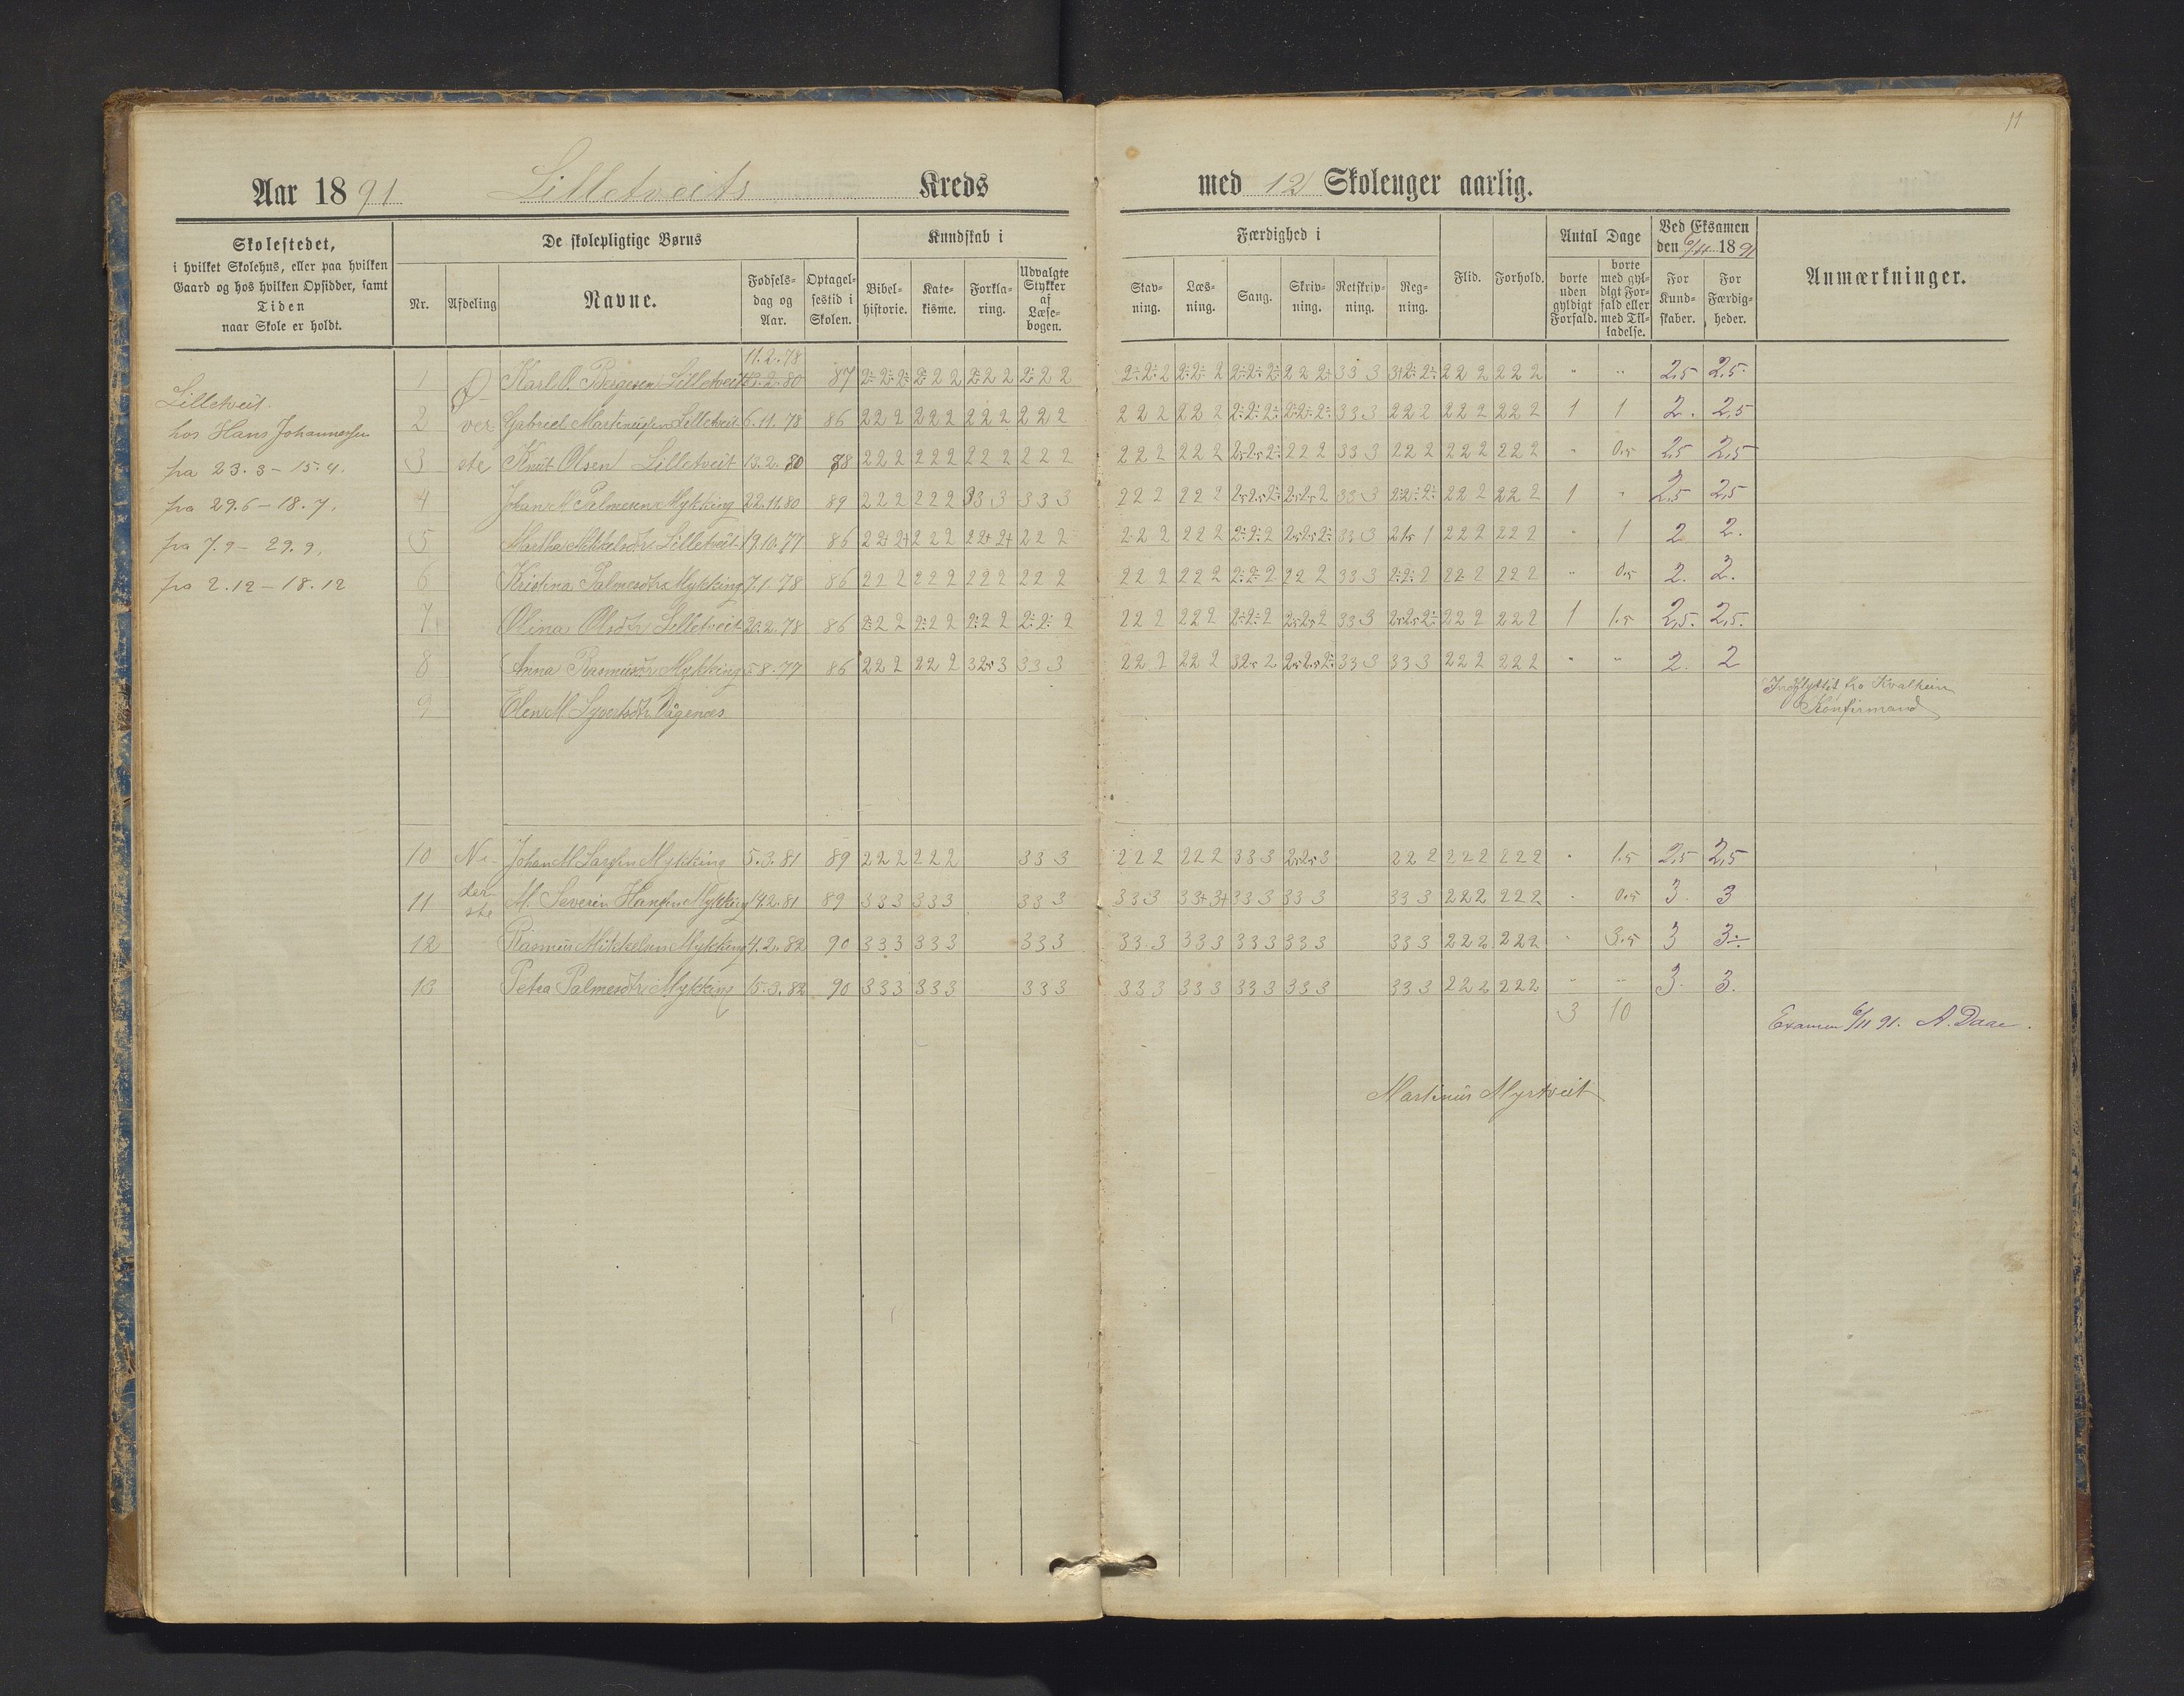 11
Aar 1891 Lilletveits Kreds med 12 Skoleuger aarlig.
Skolestedet,
i hvilket Skolehus, eller paa hvilken
Gaard og hos hvilken Opsidder, samt
Tiden
naar Skole er holdt.
De skolepligtige Børns
Nr. Afdeling Navne. Fødsels-dag og Aar. Optagel-sestid i Skolen.
Kundskab i
Bibel-historie. Kate-kisme. Forkla-ring. Udvalgte Stykker af Læse-bogen.
Færdighed i
Stav-ning. Læs-ning. Sang. Skriv-ning. Retskriv-ning. Reg-ning.
Flid. Forhold.
Antal Dage
borte uden gyldigt Forfald. borte med gyl-digt For-fald eller med Til-ladelse.
Ved Eksamen
den 6/11 1891
For Kund-skaber. For Færdig-heder.
Anmærkninger.
Lilletveit.
hos Hans Johannessen
fra 23.3 - 15.4.
fra 29.6 - 18.7.
fra 7.9 - 29.9.
fra 2.12 - 18.12
Øverste
11.2.78
1 Karl O. Børgesen Lilletveit 87 2÷ 2÷ 2÷ 2÷ 2 2 2÷ 2 2 2÷ 2 2 2÷ 2÷ 2 2÷ 2÷ 2 2÷ 2÷ 2÷ 2 2 2÷ 3 3 3 3+ 2÷ 2÷ 2 2 2 2 2 2 " " 2,5 2,5
2 Gabriel Martinussen Lilletveit 6.11.78 86 2 2 2 2 2 2 2 2 2 2 2 2 2 2 2 2 2 2 2÷ 2÷ 2÷ 2÷ 2÷ 2÷ 3 3 3 2 2 2 2 2 2 2 2 2 1 1 2. 2,5
3 Knut Olsen Lilletveit 13.2.80 88 2 2 2 2 2 2 2 2 2 2 2 2 2 2 2 2 2 2 2,5 2,5 2÷ 2 2 2 3 3 3 2 2 2 2 2 2 2 2 2 " 0.5 2,5 2,5
4 Johan M. Palmesen Mykking 22.11.80 89 2 2 2 2 2 2 3 3 3 3 3 3 2 2 2 2 2 2 2,5 2,5 2÷ 2,5 2,5 2 3 3 3 2 2÷ 2÷ 2 2 2 2 2 2 1 " 2,5 2,5
5 Martha Mikkelsdtr. Lilletveit 19.10.77 86 2 2+ 2+ 2 2 2 2 2+ 2+ 2 2 2 2 2 2 2 2 2 2÷ 2÷ 2 2,5 2,5 2÷ 3 3 3 2 1,5 1 2 2 2 2 2 2 " 1 2 2.
6 Kristina Palmesdtr. Mykking 7.1.78 86 2 2 2 2 2 2 2 2 2 2 2 2 2 2 2 2 2 2 2÷ 2÷ 2 2 2 2 3 3 3 2÷ 2÷ 2 2 2 2 2 2 2 " 0.5 2. 2.
7 Olina Olsdtr. Lilletveit 20.2.78 86 2÷ 2 2 2÷ 2 2 2÷ 2 2 2÷ 2÷ 2 2 2 2 2 2 2 2÷ 2÷ 2 2,5 2,5 2 3 3 3 2,5 2,5 2÷ 2 2 2 2 2 2 1 1.5 2,5. 2,5.
8 Anna Rasmusdtr. Mykking 5.8.77 86 2 2 2 2 2 2 3 2,5 3 3 3 3 2 2 2 2 2 2 3 2,5 2 2,5 2,5 2÷ 3 3 3 3 3 3 2 2 2 2 2 2 " " 2. 2
9 Elen M. Syvertsdtr. Vågenæs Indflyttet fra Kvalheim
Konfirmand
Nederste
10 Johan M. Larssen Mykking 5.3.81 89 2 2 2 2 2 2 3 3 3 2 2 2 2 2 2 3 3 3 2,5 2,5 3 2 2 2 2 2 2 2 2 2 " 1.5 2,5 2,5
11 M. Severin Hanssen Mykking 14.2.81 89 3 3 3 3 3 3 3 3 3 3 3 3 3 3+ 3+ 3 3 3 3 3 3 3 3 3 2 2 2 2 2 2 " 0.5 3. 3
12 Rasmus Mikkelsen Mykking 4.2.82 90 3 3 3 3 3 3 3 3 3 3 3 3 3 3 3 3 3 3 3 3 3 3 3 3 2 2 2 2 2 2 " 3.5 3 3÷
13 Petra Palmesdtr. Mykking 15.3.82 90 3 3 3 3 3 3 3 3 3 3 3 3 3 3 3 3 3 3 3 3 3 3 3 3 2 2 2 2 2 2 " " 3. 3.
3 10
Examen 6/11 91. A. Daae.
Martinus Myrtveit